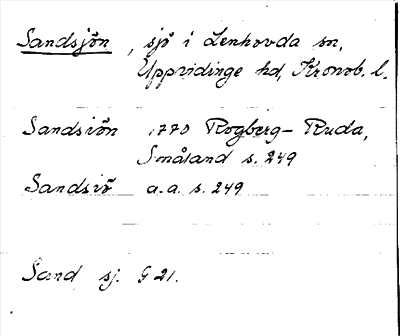 Sandsjön, sjö i Lenhovda sn,
Uppvidinge hd, Kronob. l.
Sandsiön 1770 Rogberg-Ruda,
Småland s. 249
Sandsiö a.a. s. 249
Sand sj. G 21.